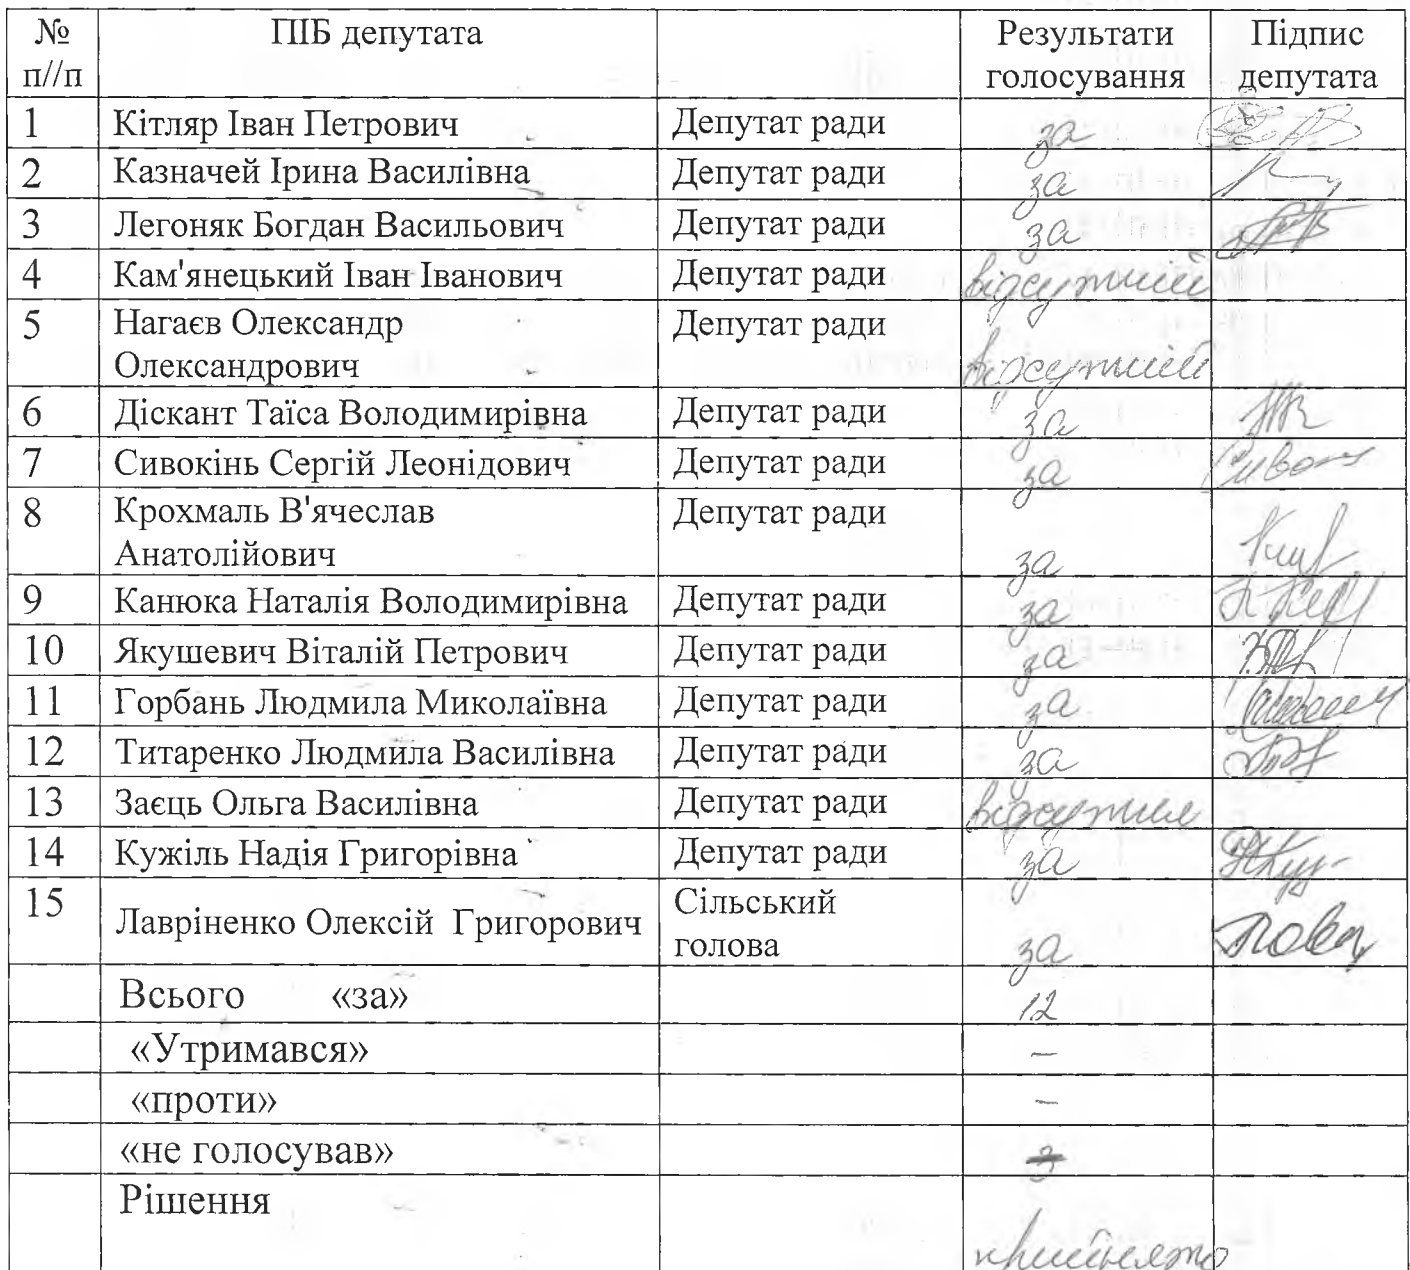 № п//п ПІБ депутата Результати голосування Підпис депутата
1 Кітляр Іван Петрович Депутат ради за
2 Казначей Ірина Василівна Депутат ради за
3 Легоняк Богдан Васильович Депутат ради за
4 Кам'янецький Іван Іванович Депутат ради відсутній
5 Нагаєв Олександр Олександрович Депутат ради відсутній
6 Діскант Таїса Володимирівна Депутат ради за
7 Сивокінь Сергій Леонідович Депутат ради за
8 Крохмаль В'ячеслав Анатолійович Депутат ради за
9 Канюка Наталія Володимирівна Депутат ради за
10 Якушевич Віталій Петрович Депутат ради за
11 Горбань Людмила Миколаївна Депутат ради за
12 Титаренко Людмила Василівна Депутат ради за
13 Заєць Ольга Василівна Депутат ради відсутня
14 Кужіль Надія Григорівна Депутат ради за
15 Лавріненко Олексій Григорович Сільський голова за
Всього «за» 12
«Утримався» –
«проти» –
«не голосував»
Рішення прийнято